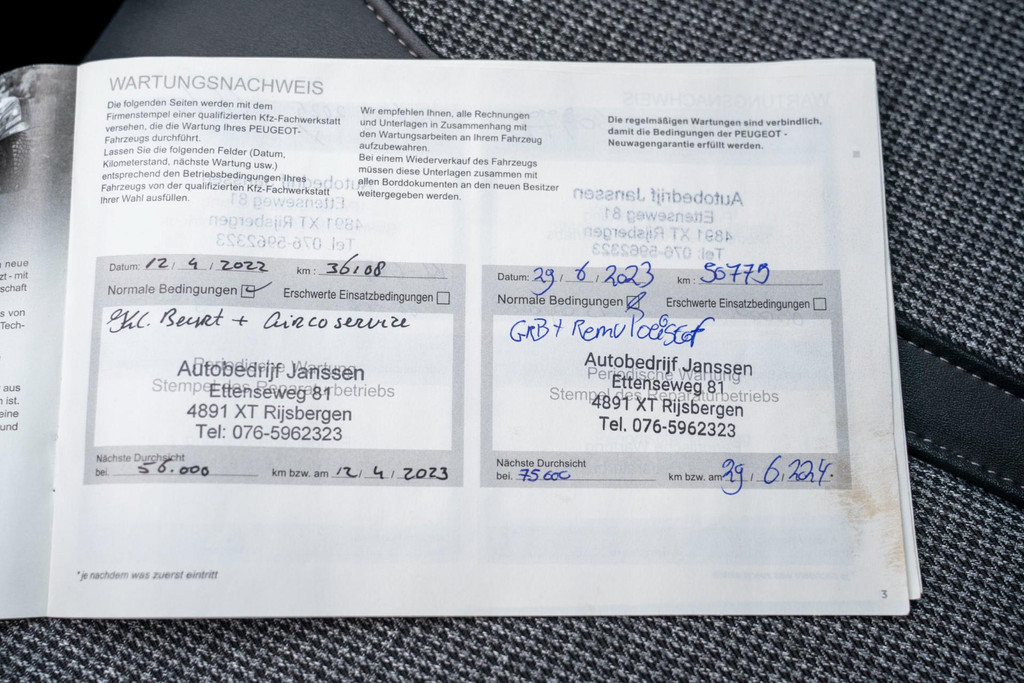 WARTUNGSNACHWEIS
Die folgenden Seiten werden mit dem
Firmenstempel einer qualifizierten Kfz-Fachwerkstatt
versehen, die die Wartung Ihres PEUGEOT-
Fahrzeugs durchführt.
Lassen Sie die folgenden Felder (Datum,
Kilometerstand, nächste Wartung usw.)
entsprechend den Betriebsbedingungen Ihres
Fahrzeugs von der qualifizierten Kfz-Fachwerkstatt
Ihrer Wahl ausfüllen.
Wir empfehlen Ihnen, alle Rechnungen
und Unterlagen in Zusammenhang mit
den Wartungsarbeiten an Ihrem Fahrzeug
aufzubewahren.
Bei einem Wiederverkauf des Fahrzeugs
müssen diese Unterlagen zusammen mit
allen Borddokumenten an den neuen Besitzer
weitergegeben werden.
Die regelmäßigen Wartungen sind verbindlich,
damit die Bedingungen der PEUGEOT -
Neuwagengarantie erfüllt werden.
Datum: 12 / 4 / 2022 km : 36108
Normale Bedingungen Erschwerte Einsatzbedingungen
Beurt + Aircoservice
Periodische Wartung
Stempel des Reparaturbetriebs
Autobedrijf Janssen
Ettenseweg 81
4891 XT Rijsbergen
Tel: 076-5962323
Nächste Durchsicht
bei. 56.000 km bzw. am 12 / 4 / 2023
Datum: 29 / 6 / 2023 km : 50779
Normale Bedingungen Erschwerte Einsatzbedingungen
GRB + Remvloeistof
Periodische Wartung
Stempel des Reparaturbetriebs
Autobedrijf Janssen
Ettenseweg 81
4891 XT Rijsbergen
Tel. 076-5962323
Nächste Durchsicht
bei. 75000 km bzw. am 29 / 6 / 2024.
*je nachdem was zuerst eintritt
3
neue
mit
schaft
von
Tech-
aus
ist.
eine
und